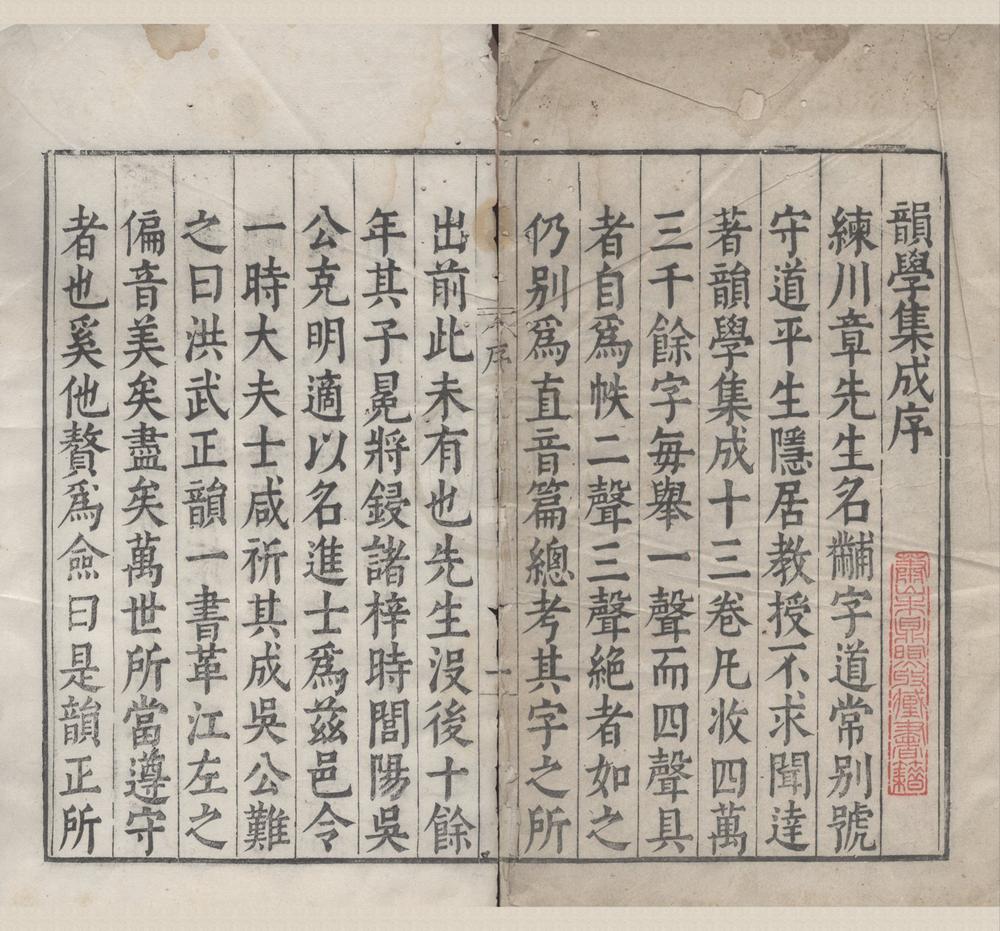 韻學集成序
練川章先生名黼字道常別號
守道平生隱居教授不求聞達
著韻學集成十三卷凡收四萬
三千餘字每舉一聲而四聲具
者自爲帙二聲三聲絶者如之
仍別爲直音篇總考其字之所
序
一
出前此未有也先生沒後十餘
年其子冕將鋟諸梓時閭陽吳
公克明適以名進士爲茲邑令
一時大夫士咸祈其成吳公難
之曰洪武正韻一書革江左之
偏音美矣盡矣萬世所當遵守
者也奚他贅爲僉曰是韻正所